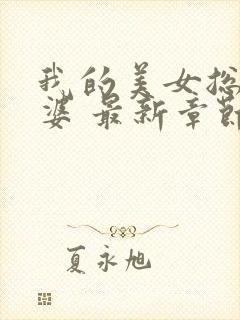 我的美女总
婆 最新章节
夏永旭